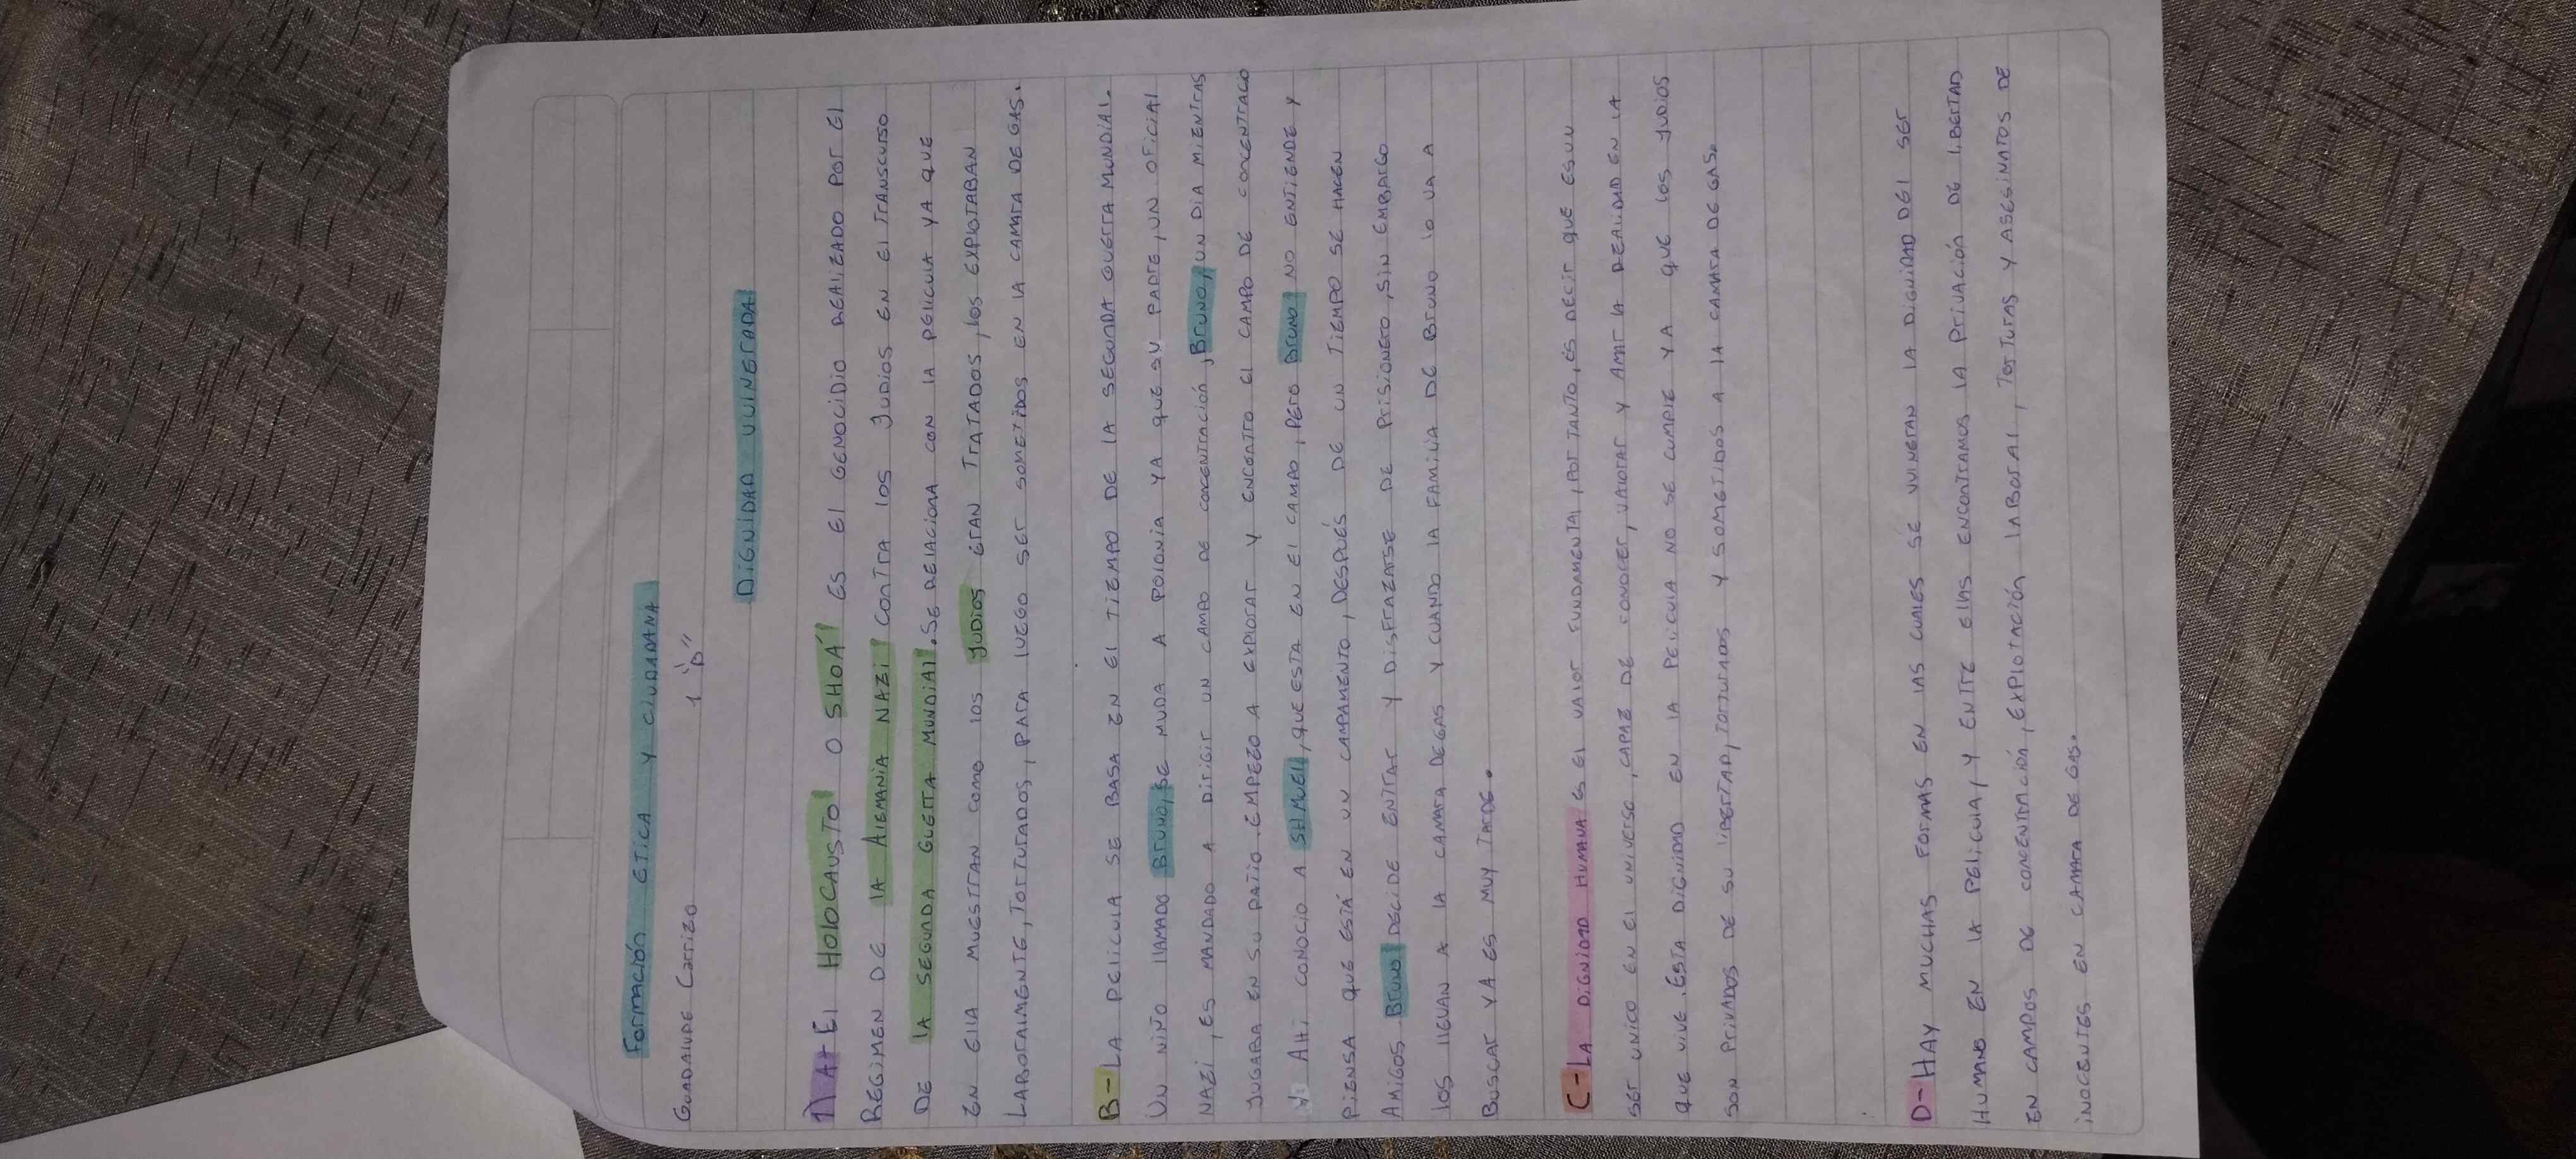 Formación ética y ciudadana
Guadalupe Carrizo 1 "D"
Dignidad vulnerada
1) A- El Holocausto o Shoá es el genocidio realizado por el
regimen de la Alemania Nazi contra los judios en el transcurso
de la Segunda Guerra Mundial. Se relaciona con la pelicula ya que
en ella muestran como los judios eran tratados, los explotaban
laboralmente, torturados, para luego ser sometidos en la camara de gas.
B- La pelicula se basa en el tiempo de la segunda guerra mundial.
Un niño llamado Bruno, se muda a Polonia ya que su padre, un oficial
nazi, es mandado a dirigir un campo de concentración, Bruno, un dia mientras
jugaba en su patio empezo a explorar y encontro el campo de concentraco
Ahi conocio a Shmuel, que esta en el campo, pero Bruno no entiende y
piensa que está en un campamento, después de un tiempo se hacen
amigos Bruno decide entrar y disfrazarse de prisionero, sin embargo
los llevan a la camara de gas y cuando la familia de Bruno lo va a
buscar ya es muy tarde.
C- La dignidad humana es el valor fundamental, por tanto, es decir que es un
ser unico en el universo, capaz de conocer, valorar y amar la realidad en la
que vive. Esta dignidad en la pelicula no se cumple ya que los judios
son privados de su libertad, torturados y sometidos a la camara de gas.
D- Hay muchas formas en las cuales se vulneran la dignidad del ser
humano en la pelicula, y entre ellas encontramos la privación de libertad
en campos de concentración, explotación laboral, torturas y asesinatos de
inocentes en camara de gas.